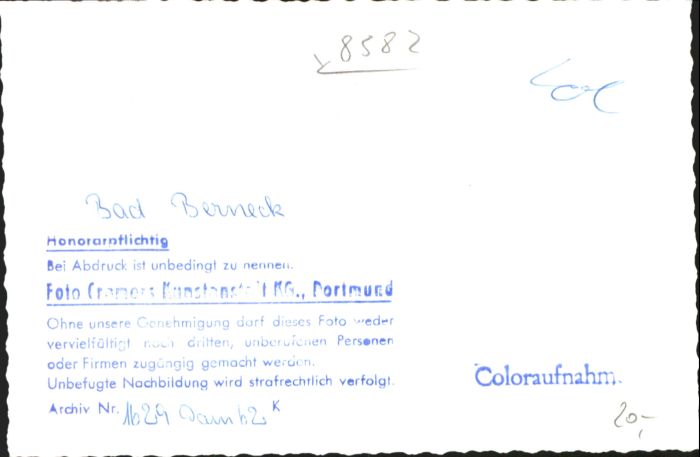 8582
Bad Berneck
Honorarpflichtig
Bei Abdruck ist unbedingt zu nennen.
Foto Cramers Kunstanstalt KG., Dortmund
Ohne unsere Genehmigung darf dieses Foto weder
vervielfältigt noch dritten, unberufenen Personen
oder Firmen zugängig gemacht werden.
Unbefugte Nachbildung wird strafrechtlich verfolgt.
Coloraufnahm.
Archiv Nr. 1629 62 K
20,-